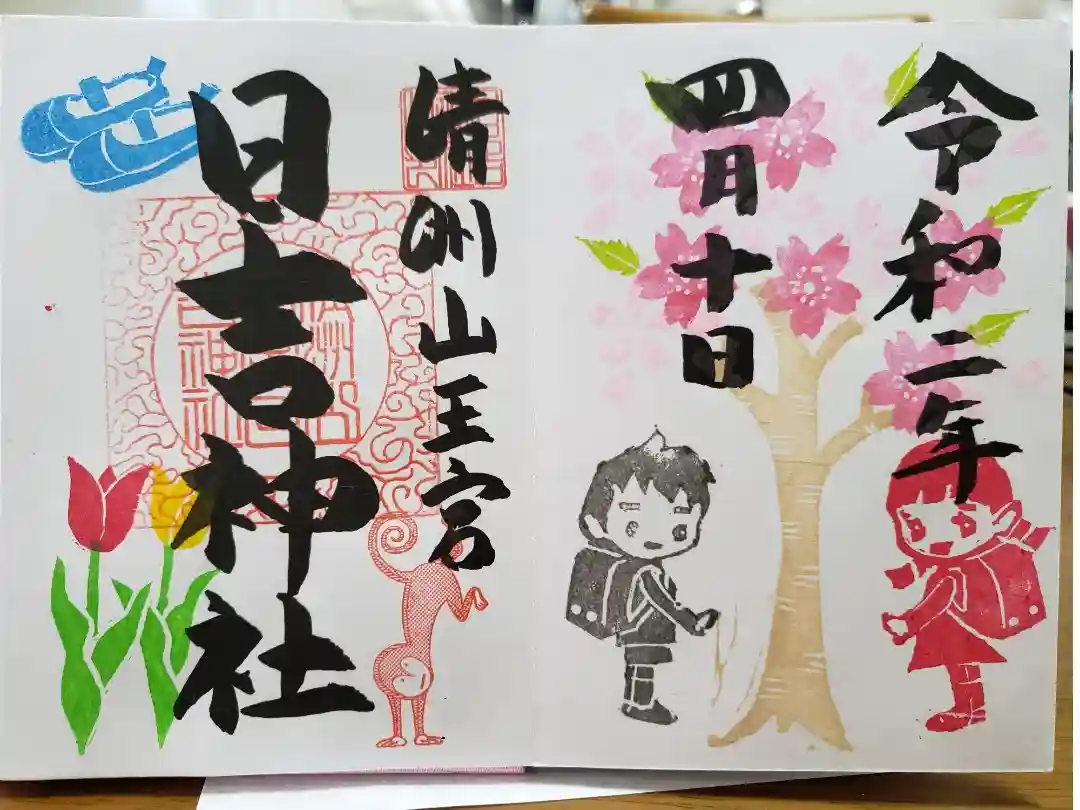 令和二年
四月十日
清洲山王宮
日吉神社